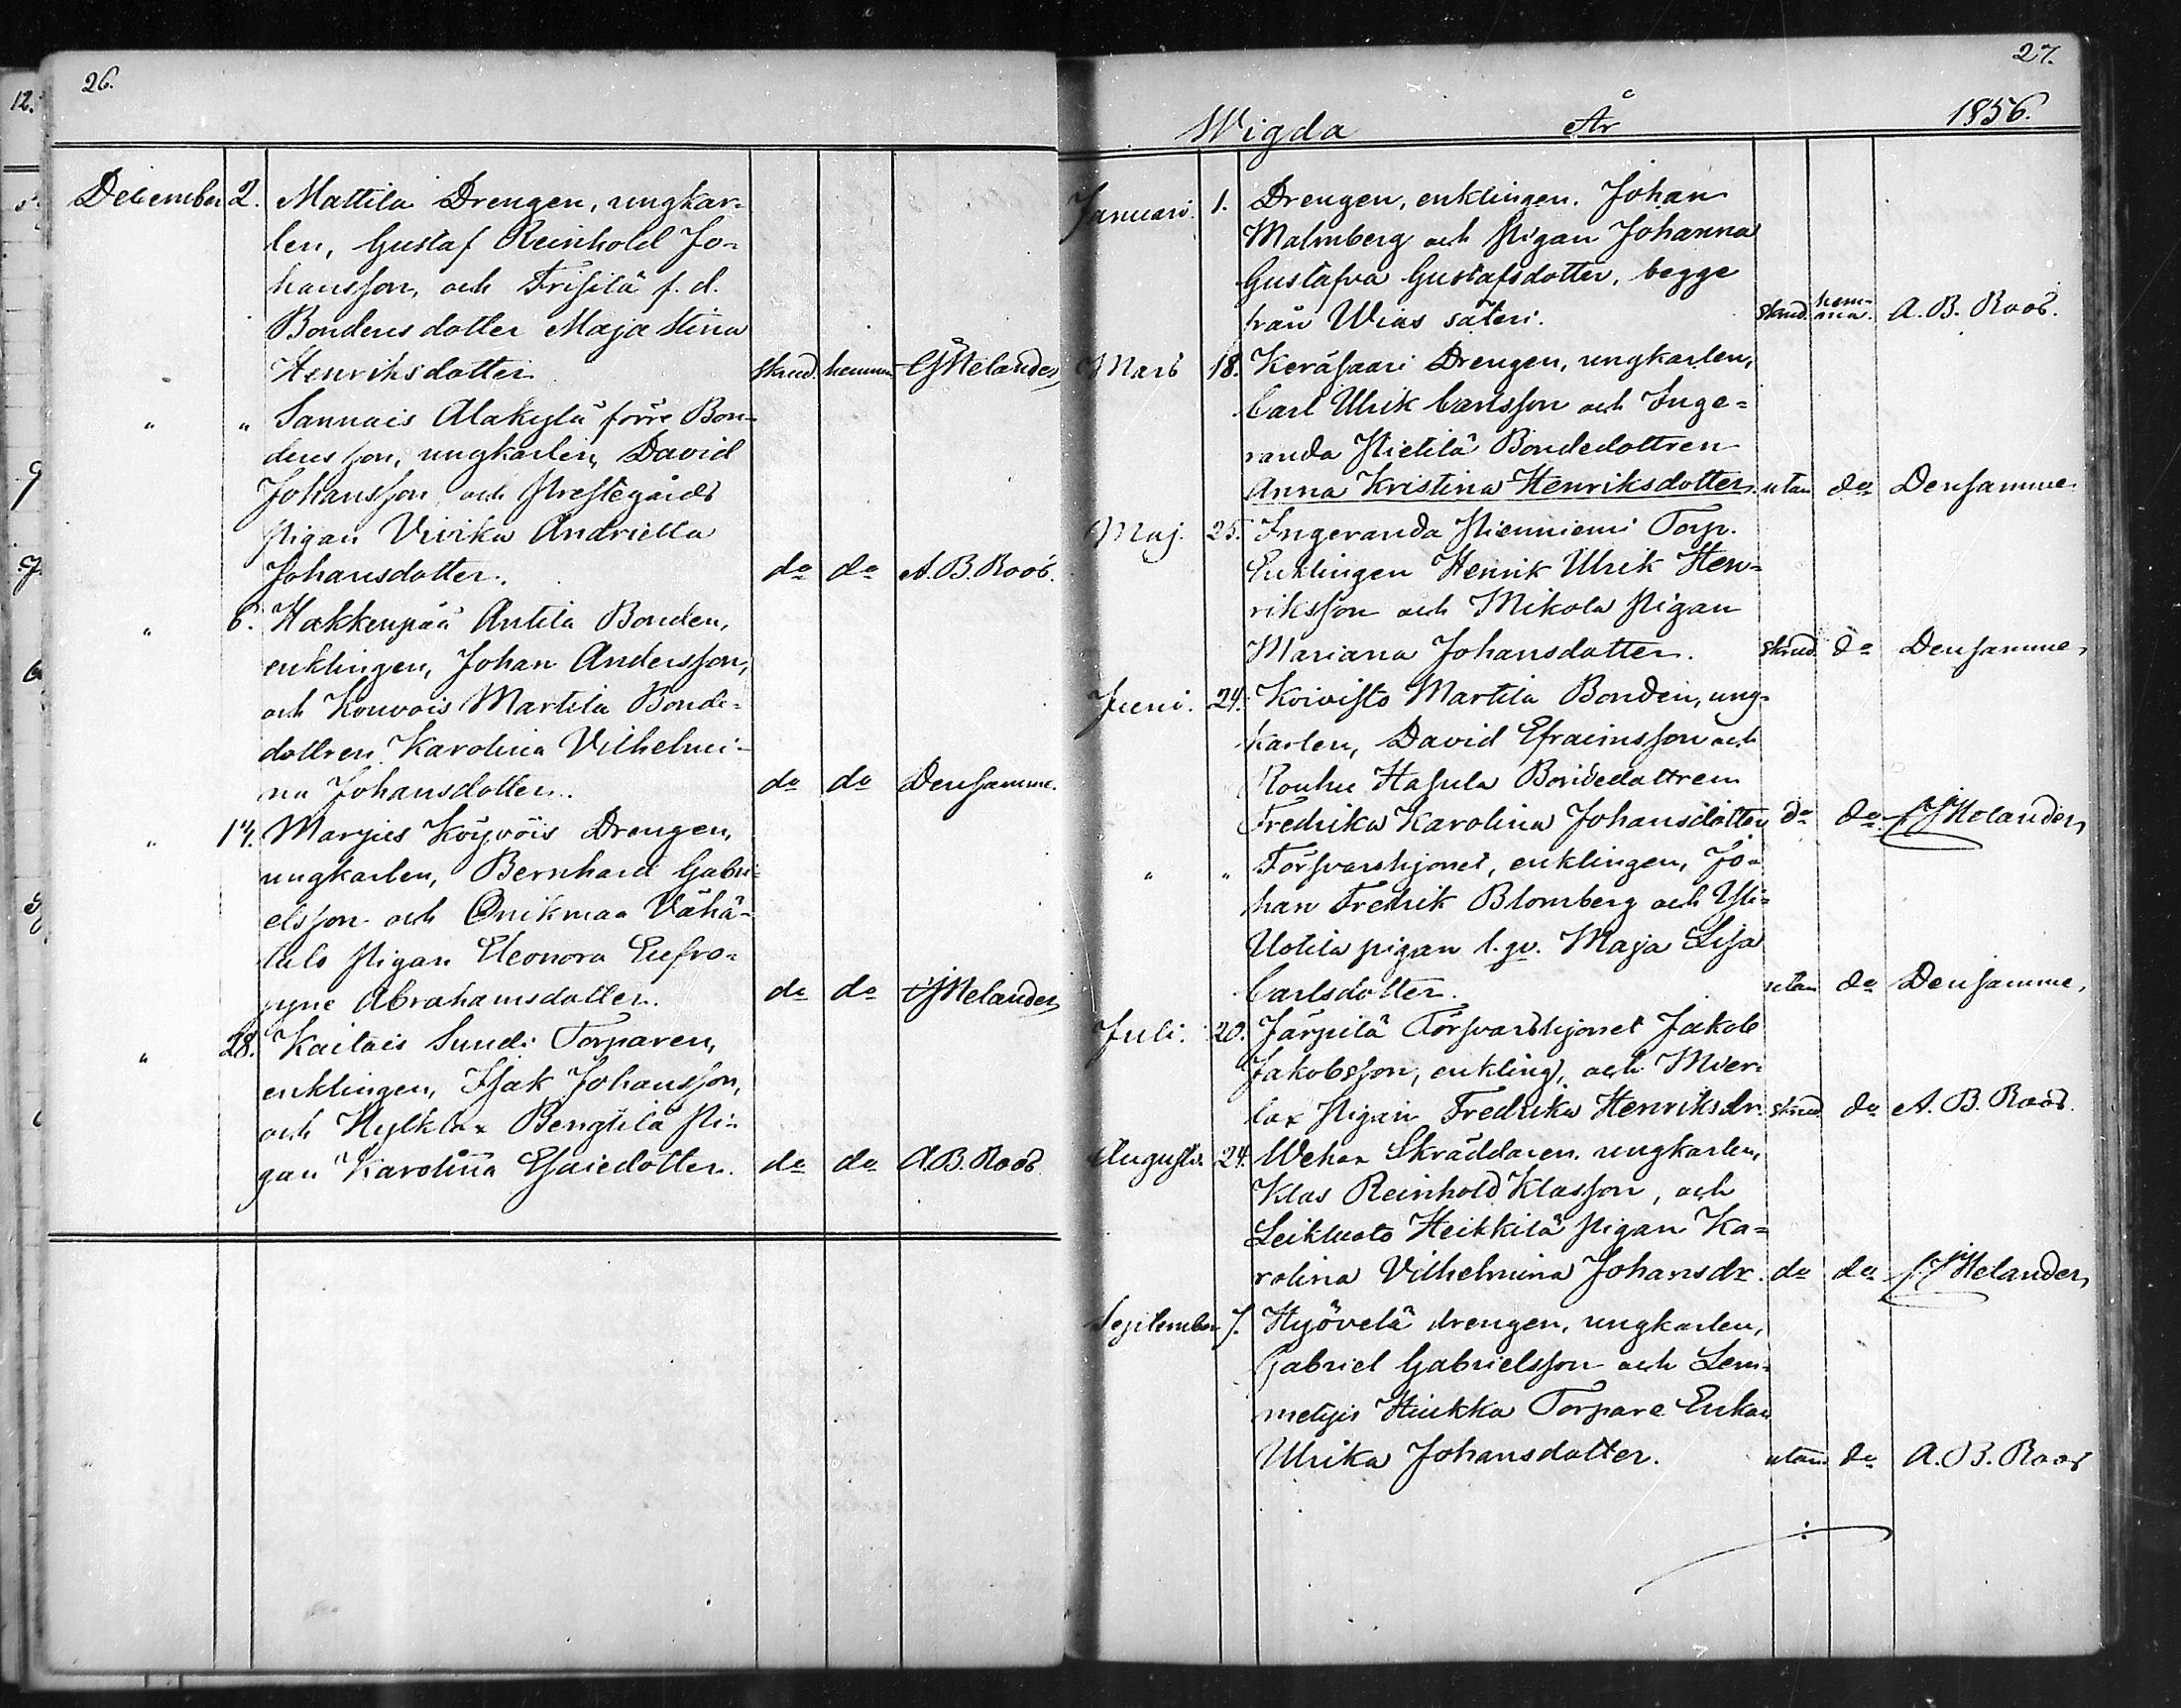 26.
December 2. Mattila Drengen, ungkar-
len, Gustaf Reinhold Jo-
hansson, och Frisilä f. d.
Bondens dotter Maja Stina
Henriksdotter. skrud. hemma
" " Sannais Alakylä förre Bon-
dens son, ungkarlen, David
Johansson och Prestegårds
Pigan Vivika Andrietta
Johansdotter. do do A. B. Roos.
" 6. Hakkenpää Antila Bonden,
enklingen, Johan Andersson,
och Kouvois Martila Bonde-
dottren Karolina Vilhelmi-
na Johansdotter. do do Densamme.
" 14. Drengen,
ungkarlen, Bernhard Gabri-
elsson och Onikmaa Vähä-
talo Pigan Eleonora Eufro-
syne Abrahamsdotter. do do
" 28. Kaitais Sundi Torparen,
enklingen, Isak Johansson,
och Hylklax Bengtilä Pi-
gan Karolina Esaiedotter. do do A. B. Roos.
27.
Wigda År 1856.
Januari. 1. Drengen, enklingen. Johan
Malmberg och Pigan Johanna
Gustafva Gustafsdotter, begge
från Wias säteri. skrud. hem-
ma. A. B. Roos.
Mars 18. Keräsaari Drengen, ungkarlen,
Carl Ulrik Carlsson och Inge-
randa Pietilä Bondedottren
Anna Kristina Henriksdotter. utan do Densamme.
Maj. 25. Ingeranda Pienniemi Torp.
Enklingen Henrik Ulrik Hen-
riksson och Mikola Pigan
Mariana Johansdotter. skrud. do Densamme,
Juni. 24. Koivisto Martila Bonden, ung-
karlen, David Efraimsson och
Rouhu Hasula Bondedottren
Fredrika Karolina Johansdotter do do
" " Försvarshjonet, enklingen, Jo-
han Fredrik Blomberg och Yli-
Uotila pigan l. qv. Maja Lisa
Carlsdotter. utan do Densamme,
Juli. 20. Järpilä Försvarshjonet Jakob
Jakobsson, enkling, och Mier-
lax Pigan Fredrika Henriksdr. skrud do A. B. Roos.
Augusti. 24. Wehax Skräddaren. ungkarlen,
Klas Reinhold Klasson, och
Leikluoto Heikkilä Pigan Ka-
rolina Vilhelmina Johansdr. do do
September 7. Hyövelä drengen, ungkarlen,
Gabriel Gabrielsson och Lem-
metyis Hiukka Torpare Enkan
Ulrika Johansdotter. utan do A. B. Roos